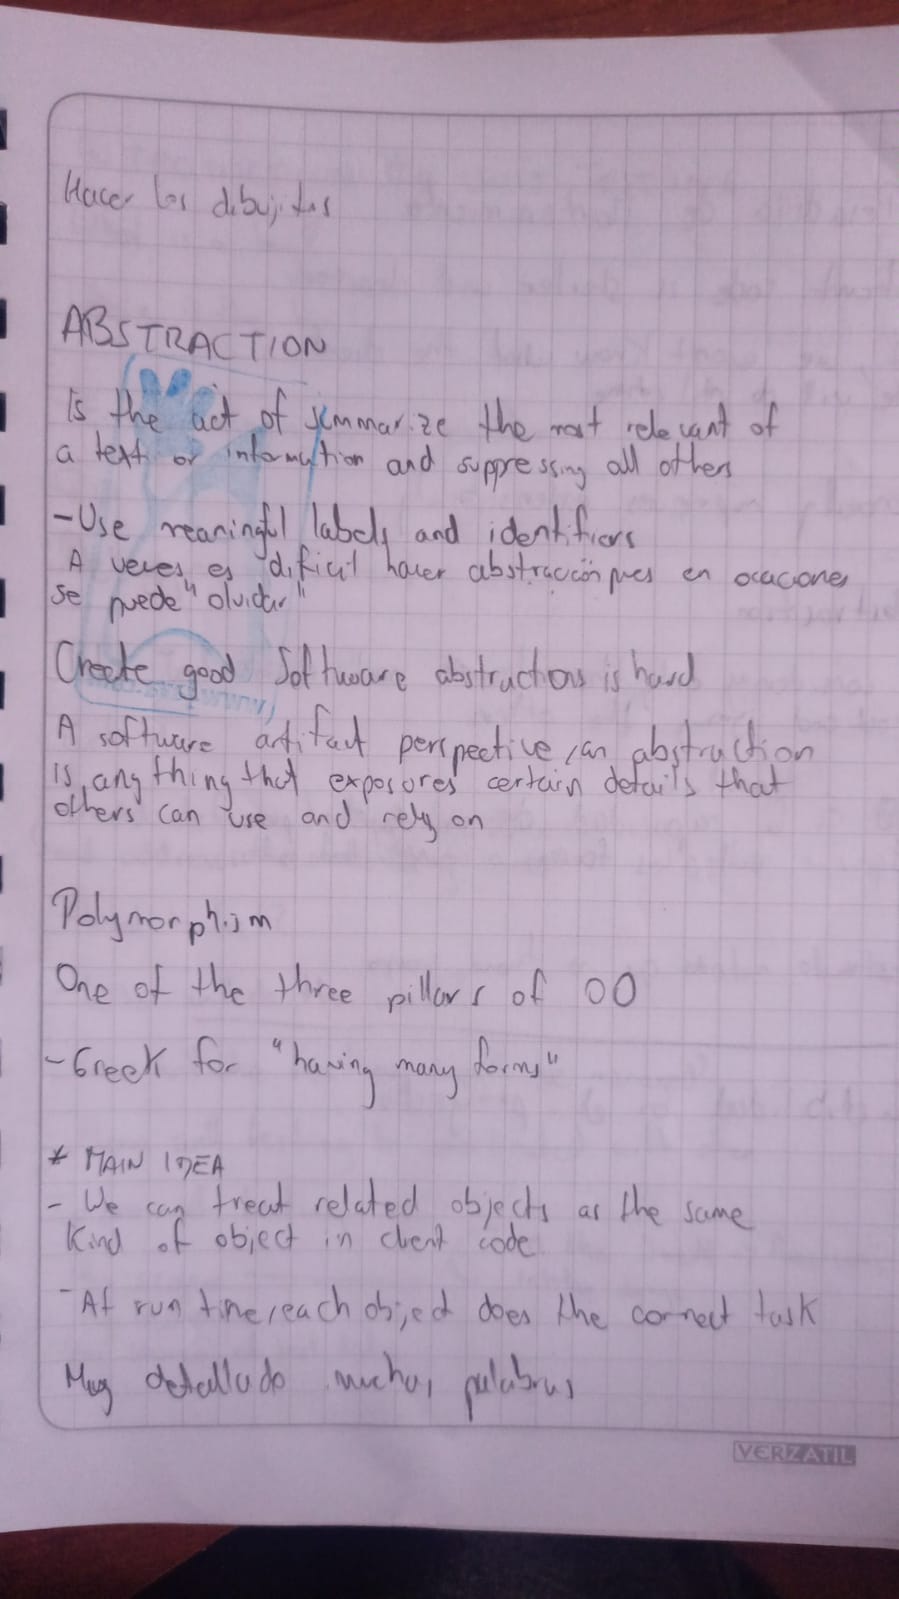 Hacer los dibujitos
ABSTRACTION
Is the act of summarize the most relevant of
a text or information and suppressing all others
-Use meaningful labels and identifiers
A veces es dificil hacer abstracción pues en ocaciones
se puede "olvidar"
Create good Software abstractions is hard
A software artifact perspective, an abstraction
is anything that exposores certain details that
others can use and rely on
Polymorphism
One of the three pillars of OO
-Greek for "having many forms"
* MAIN IDEA
- We can treat related objects as the same
Kind of object in client code
- At run time, each object does the correct task
Muy detallado muchas palabras
VERZATIL